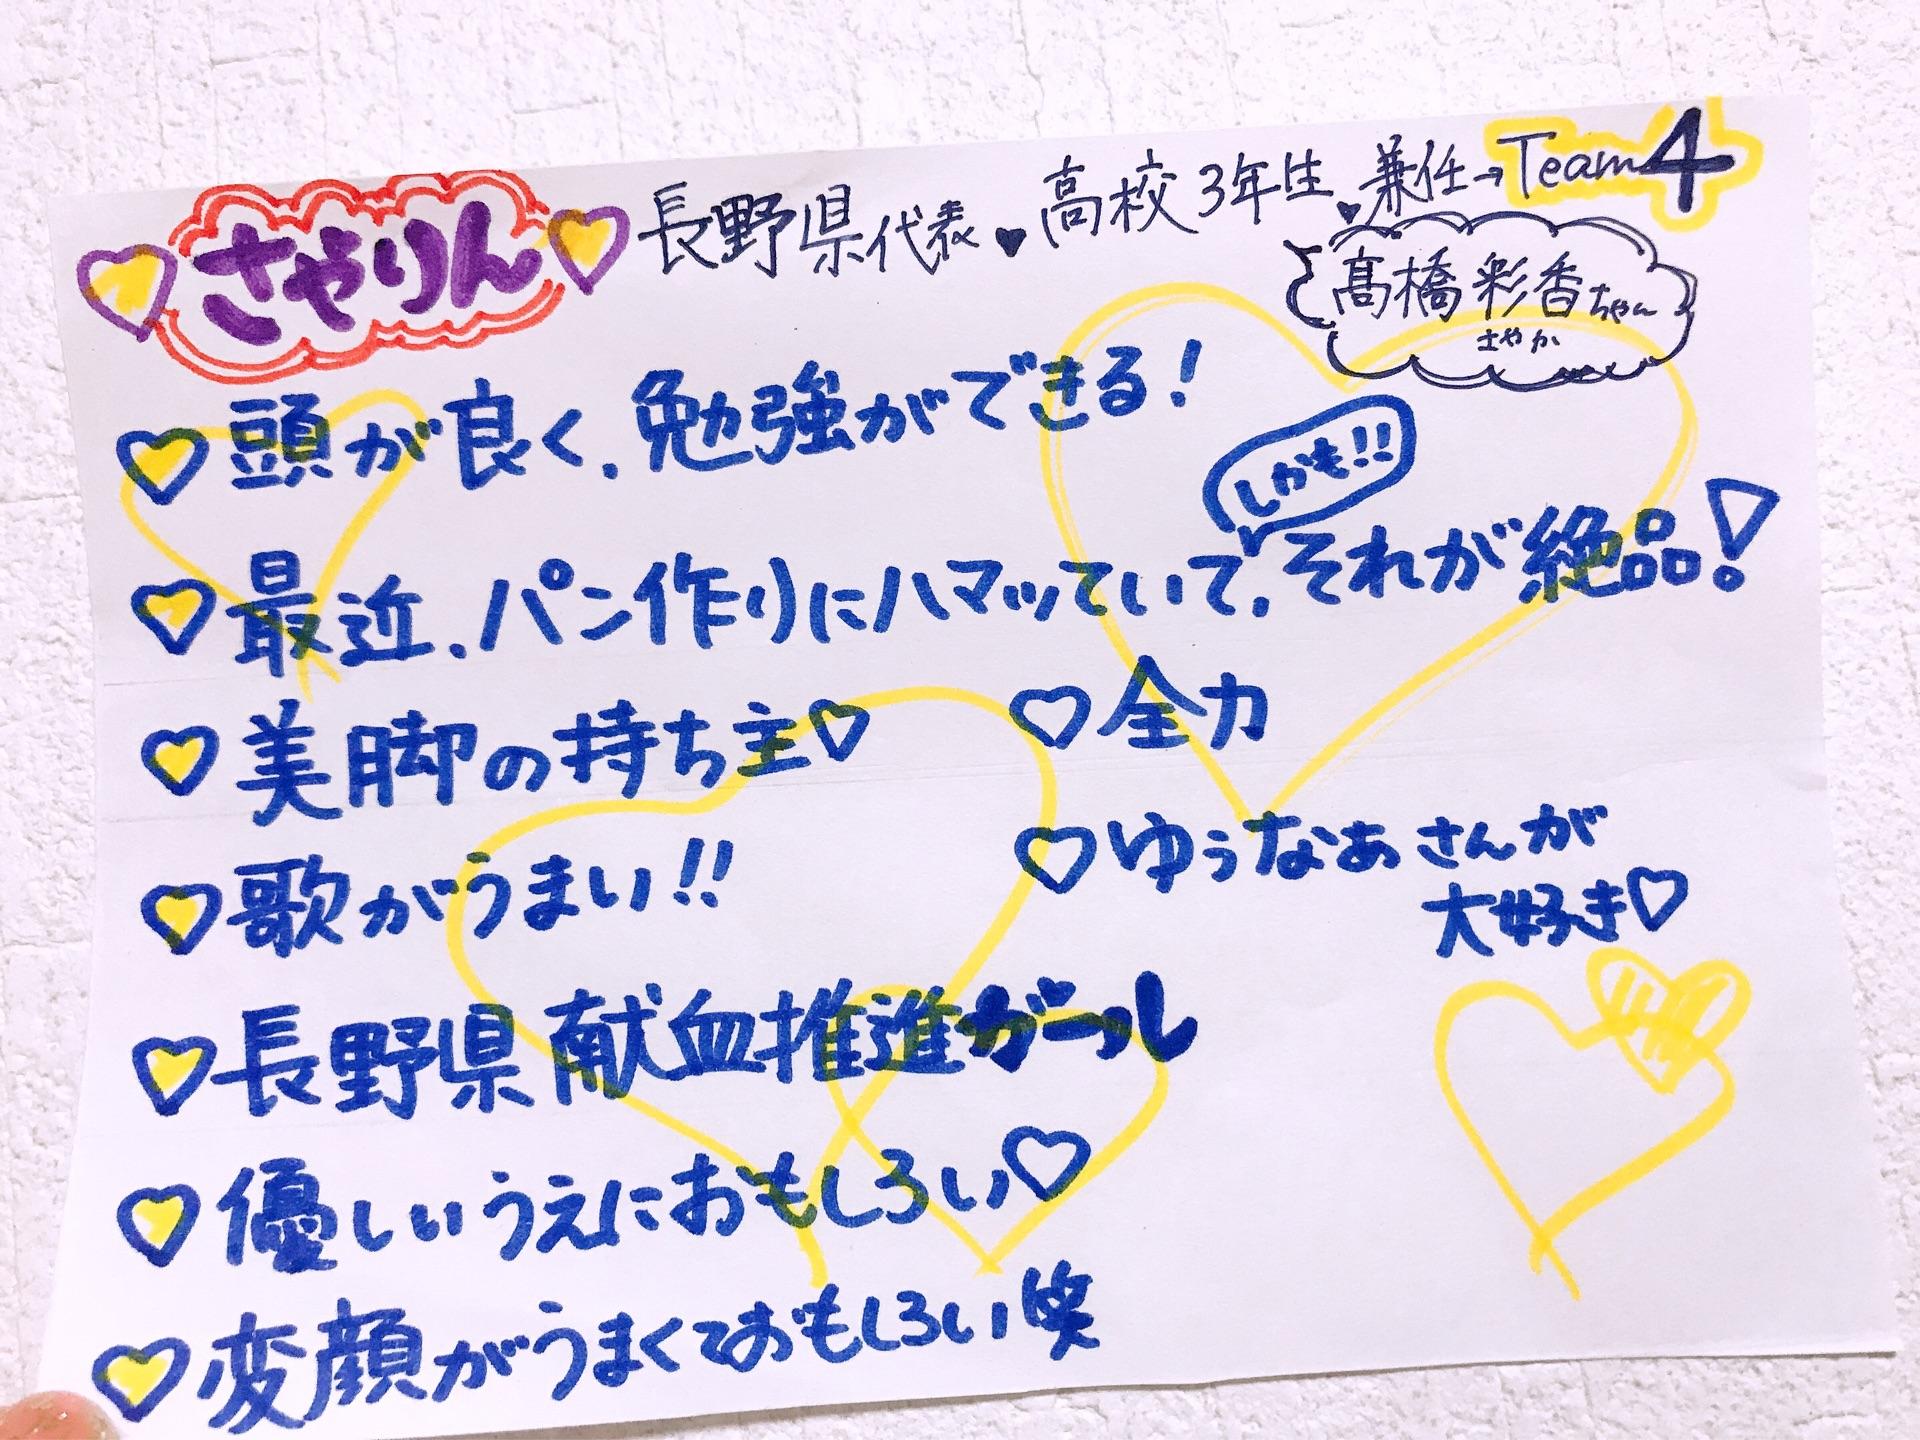 さやりん 長野県代表♥高校3年生♥兼任→Team4
髙橋彩香ちゃん
さやか
♡頭が良く、勉強ができる!
しかも!!
♡最近、パン作りにハマッていて、それが絶品!
♡美脚の持ち主♡ ♡全力
♡歌がうまい!! ♡ゆうなあさんが
大好き♡
♡長野県献血推進ガール
♡優しいうえにおもしろい♡
♡変顔がうまくておもしろい笑